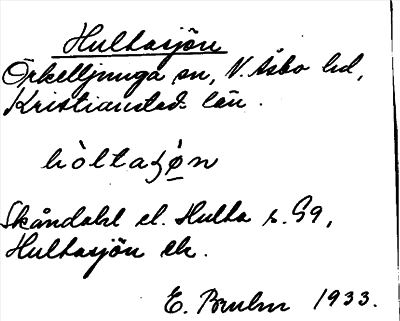 Hultasjön
Örkelljunga sn, N. Åsbo hd,
Kristianstads län.
hòltaʒø̀n
Skåndahl el. Hulta s. 59,
Hultasjön ek.
E. Bruhn 1933.